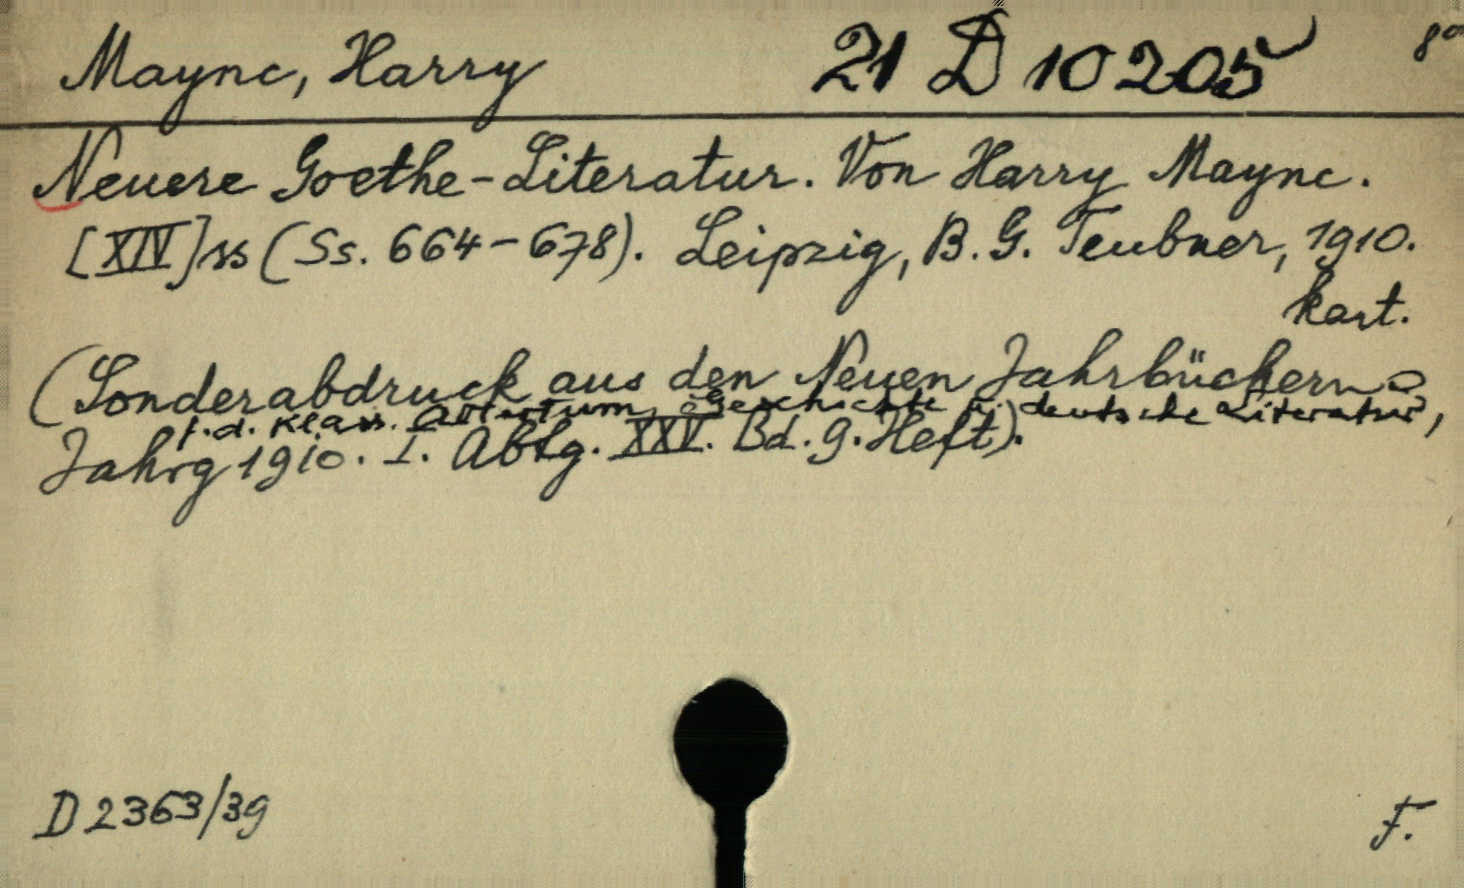 Maync, Harry 21 D 10205 8°
Neuere Goethe-Literatur. Von Harry Maync.
[XIV]ss (Ss. 664-678). Leipzig, B. G. Teubner, 1910.
kart.
(Sonderabdruck aus den Neuen Jahrbüchern
f. d. klass. Altertum, Geschichte u. deutsche Literatur,
Jahrg 1910. I. Abtg. XXV. Bd. 9. Heft).
D 2363/39
F.